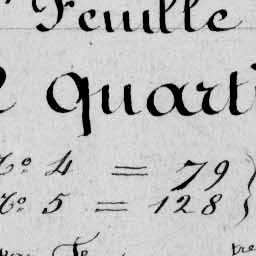 Feuille
quart
No 4 = 79
No 5 = 128 }